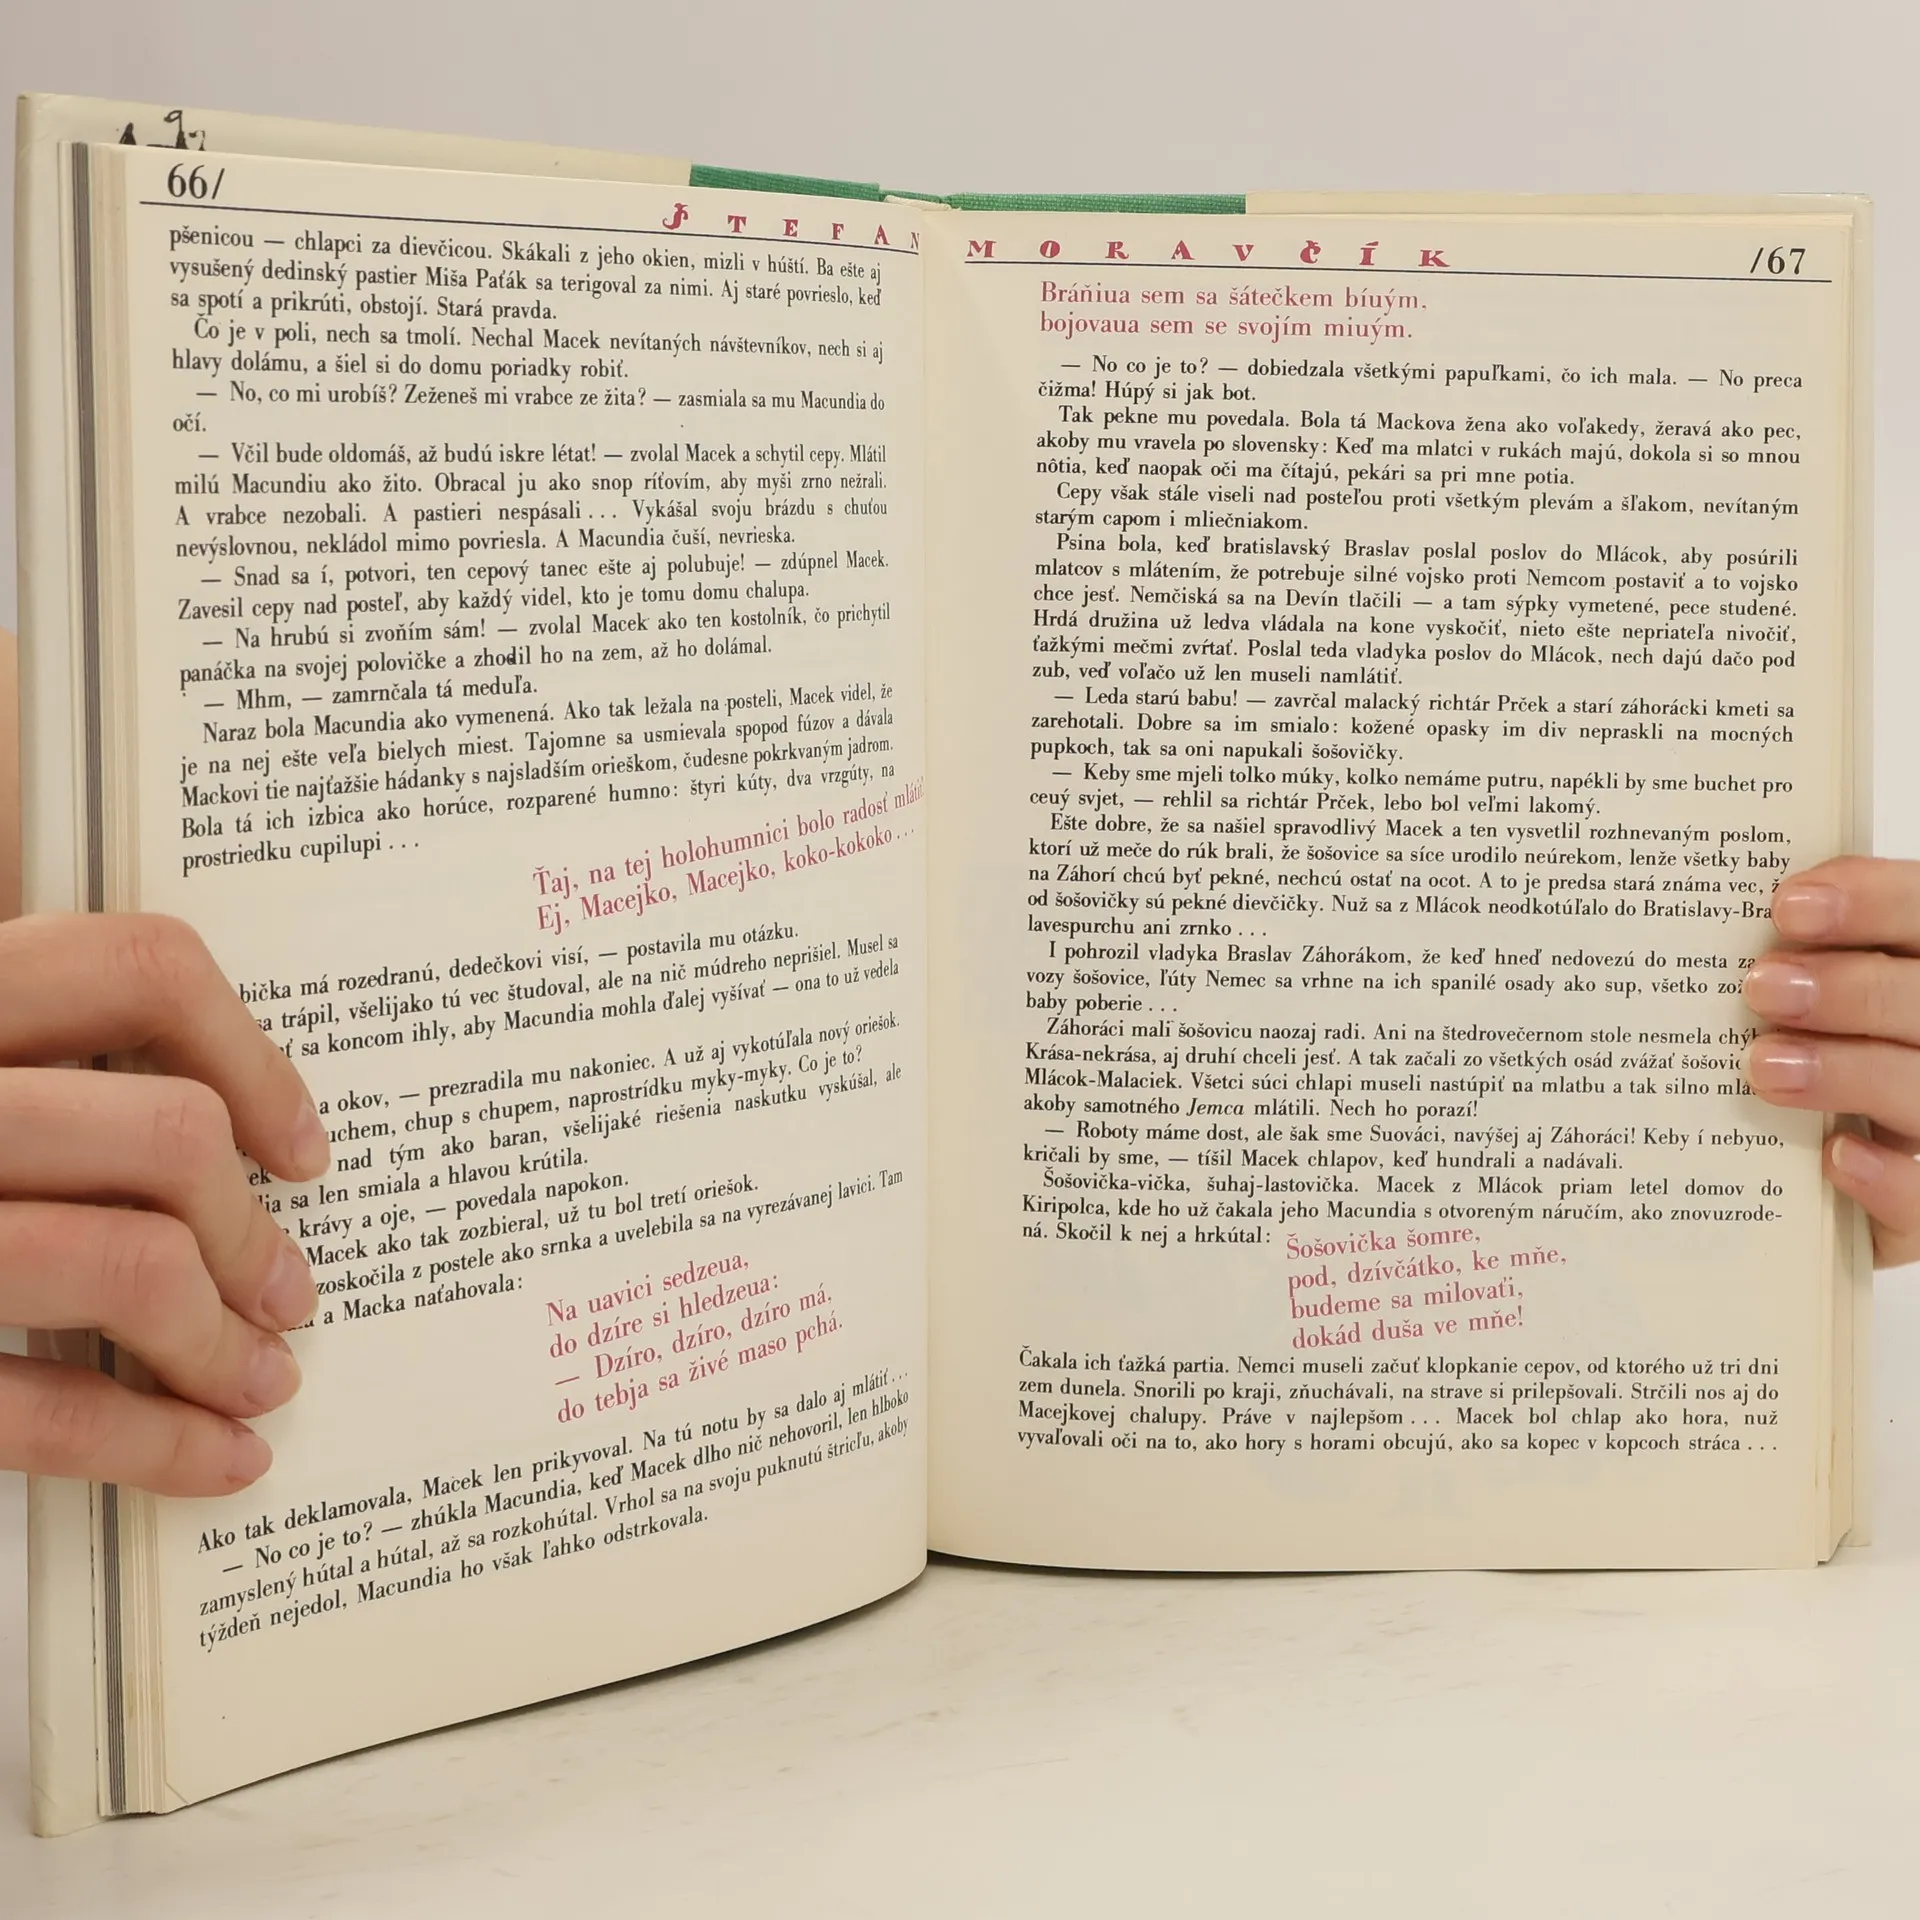 66/
ŠTEFAN
pšenicou — chlapci za dievčicou. Skákali z jeho okien, mizli v húští. Ba ešte aj
vysušený dedinský pastier Miša Paťák sa terigoval za nimi. Aj staré povrieslo, keď
sa spotí a prikrúti, obstojí. Stará pravda.
Čo je v poli, nech sa tmolí. Nechal Macek nevítaných návštevníkov, nech si aj
hlavy dolámu, a šiel si do domu poriadky robiť.
— No, co mi urobíš? Zeženeš mi vrabce ze žita? — zasmiala sa mu Macundia do
očí.
— Včil bude oldomáš, až budú iskre létat! — zvolal Macek a schytil cepy. Mlátil
milú Macundiu ako žito. Obracal ju ako snop ríťovím, aby myši zrno nežrali.
A vrabce nezobali. A pastieri nespásali... Vykášal svoju brázdu s chuťou
nevýslovnou, nekládol mimo povriesla. A Macundia čuší, nevrieska.
— Snad sa í, potvori, ten cepový tanec ešte aj polubuje! — zdúpnel Macek.
Zavesil cepy nad posteľ, aby každý videl, kto je tomu domu chalupa.
— Na hrubú si zvoňím sám! — zvolal Macek ako ten kostolník, čo prichytil
panáčka na svojej polovičke a zhodil ho na zem, až ho dolámal.
— Mhm, — zamrnčala tá meduľa.
Naraz bola Macundia ako vymenená. Ako tak ležala na posteli, Macek videl, že
je na nej ešte veľa bielych miest. Tajomne sa usmievala spopod fúzov a dávala
Mackovi tie najťažšie hádanky s najsladším orieškom, čudesne pokrkvaným jadrom.
Bola tá ich izbica ako horúce, rozparené humno: štyri kúty, dva vrzgúty, na
prostriedku cupilupi...
Ťaj, na tej holohumnici bolo radosť mlátiť!
Ej, Macejko, Macejko, koko-kokoko...
bička má rozedranú, dedečkovi visí, — postavila mu otázku.
sa trápil, všelijako tú vec študoval, ale na nič múdreho neprišiel. Musel sa
ť sa koncom ihly, aby Macundia mohla ďalej vyšívať — ona to už vedela
a okov, — prezradila mu nakoniec. A už aj vykotúľala nový oriešok.
uchem, chup s chupem, naprostrídku myky-myky. Co je to?
ek nad tým ako baran, všelijaké riešenia naskutku vyskúšal, ale
dia sa len smiala a hlavou krútila.
krávy a oje, — povedala napokon.
Macek ako tak zozbieral, už tu bol tretí oriešok.
zoskočila z postele ako srnka a uvelebila sa na vyrezávanej lavici. Tam
a Macka naťahovala:
Na uavici sedzeua,
do dzíre si hledzeua:
— Dzíro, dzíro, dzíro má,
do tebja sa živé maso pchá.
Ako tak deklamovala, Macek len prikyvoval. Na tú notu by sa dalo aj mlátiť...
— No co je to? — zhúkla Macundia, keď Macek dlho nič nehovoril, len hlboko
zamyslený hútal a hútal, až sa rozkohútal. Vrhol sa na svoju puknutú štricľu, akoby
týždeň nejedol, Macundia ho však ľahko odstrkovala.
MORAVČÍK
/67
Bráňiua sem sa šátečkem bíuým,
bojovaua sem se svojím miuým.
— No co je to? — dobiedzala všetkými papuľkami, čo ich mala. — No preca
čižma! Húpý si jak bot.
Tak pekne mu povedala. Bola tá Mackova žena ako voľakedy, žeravá ako pec,
akoby mu vravela po slovensky: Keď ma mlatci v rukách majú, dokola si so mnou
nôtia, keď naopak oči ma čítajú, pekári sa pri mne potia.
Cepy však stále viseli nad posteľou proti všetkým plevám a šľakom, nevítaným
starým capom i mliečniakom.
Psina bola, keď bratislavský Braslav poslal poslov do Mlácok, aby posúrili
mlatcov s mlátením, že potrebuje silné vojsko proti Nemcom postaviť a to vojsko
chce jesť. Nemčiská sa na Devín tlačili — a tam sýpky vymetené, pece studené.
Hrdá družina už ledva vládala na kone vyskočiť, nieto ešte nepriateľa nivočiť,
ťažkými mečmi zvŕtať. Poslal teda vladyka poslov do Mlácok, nech dajú dačo pod
zub, veď voľačo už len museli namlátiť.
— Leda starú babu! — zavrčal malacký richtár Prček a starí záhorácki kmeti sa
zarehotali. Dobre sa im smialo: kožené opasky im div nepraskli na mocných
pupkoch, tak sa oni napukali šošovičky.
— Keby sme mjeli tolko múky, kolko nemáme putru, napékli by sme buchet pro
ceuý svjet, — rehlil sa richtár Prček, lebo bol veľmi lakomý.
Ešte dobre, že sa našiel spravodlivý Macek a ten vysvetlil rozhnevaným poslom,
ktorí už meče do rúk brali, že šošovice sa síce urodilo neúrekom, lenže všetky baby
na Záhorí chcú byť pekné, nechcú ostať na ocot. A to je predsa stará známa vec, ž
od šošovičky sú pekné dievčičky. Nuž sa z Mlácok neodkotúľalo do Bratislavy-Bra
lavespurchu ani zrnko...
I pohrozil vladyka Braslav Záhorákom, že keď hneď nedovezú do mesta za
vozy šošovice, ľúty Nemec sa vrhne na ich spanilé osady ako sup, všetko zo
baby poberie...
Záhoráci mali šošovicu naozaj radi. Ani na štedrovečernom stole nesmela chý
Krása-nekrása, aj druhí chceli jesť. A tak začali zo všetkých osád zvážať šošovic
Mlácok-Malaciek. Všetci súci chlapi museli nastúpiť na mlatbu a tak silno mlá
akoby samotného Jemca mlátili. Nech ho porazí!
— Roboty máme dost, ale šak sme Suováci, navýšej aj Záhoráci! Keby í nebyuo,
kričali by sme, — tíšil Macek chlapov, keď hundrali a nadávali.
Šošovička-vička, šuhaj-lastovička. Macek z Mlácok priam letel domov do
Kiripolca, kde ho už čakala jeho Macundia s otvoreným náručím, ako znovuzrode-
ná. Skočil k nej a hrkútal:
Šošovička šomre,
pod, dzívčátko, ke mňe,
budeme sa milovaťi,
dokád duša ve mňe!
Čakala ich ťažká partia. Nemci museli začuť klopkanie cepov, od ktorého už tri dni
zem dunela. Snorili po kraji, zňuchávali, na strave si prilepšovali. Strčili nos aj do
Macejkovej chalupy. Práve v najlepšom... Macek bol chlap ako hora, nuž
vyvaľovali oči na to, ako hory s horami obcujú, ako sa kopec v kopcoch stráca...